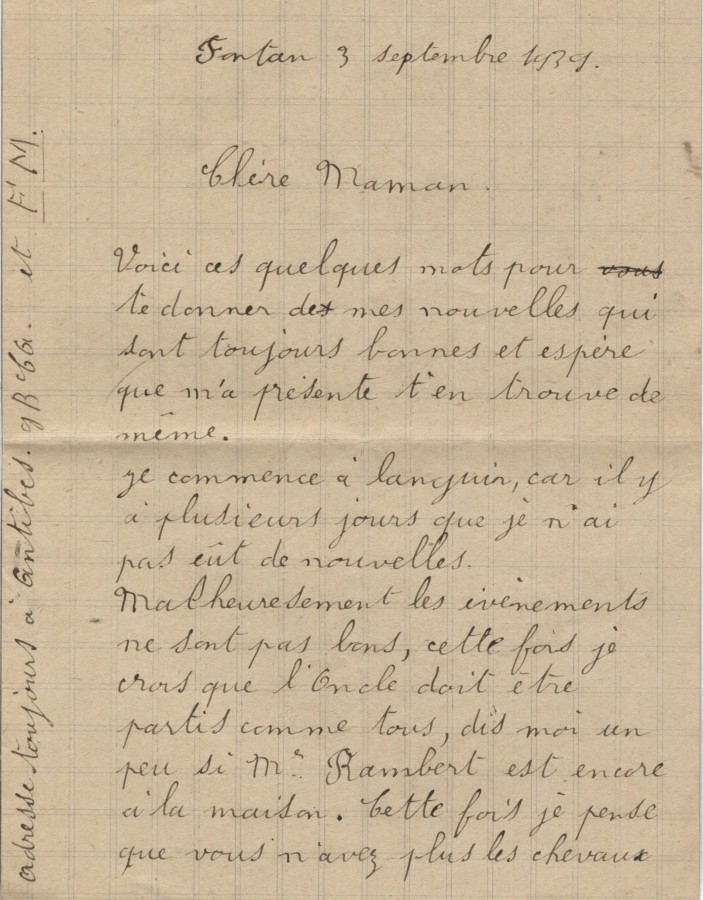 Fontan 3 septembre 1939.
Chère Maman.
Voici ces quelques mots pour vous
te donner des mes nouvelles qui
sont toujours bonnes et espère
que m'a présente t'en trouve de
même.
je commence à languir, car il y
à plusieurs jours que je n'ai
pas eût de nouvelles.
Malheuresement les évènements
ne sont pas bons, cette fois je
crois que l'Oncle doit être
partis comme tous, dis moi un
peu si Mr. Rambert est encore
à la maison. Cette fois je pense
que vous n'avez plus les chevaux
adresse toujours à Antibes. et F M.